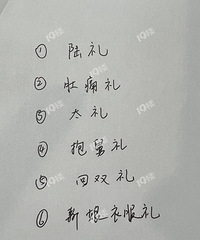 ① 陆礼
② 肚痛礼
③ 大礼
④ 抱礼
⑤ 回双礼
⑥ 新娘衣服礼